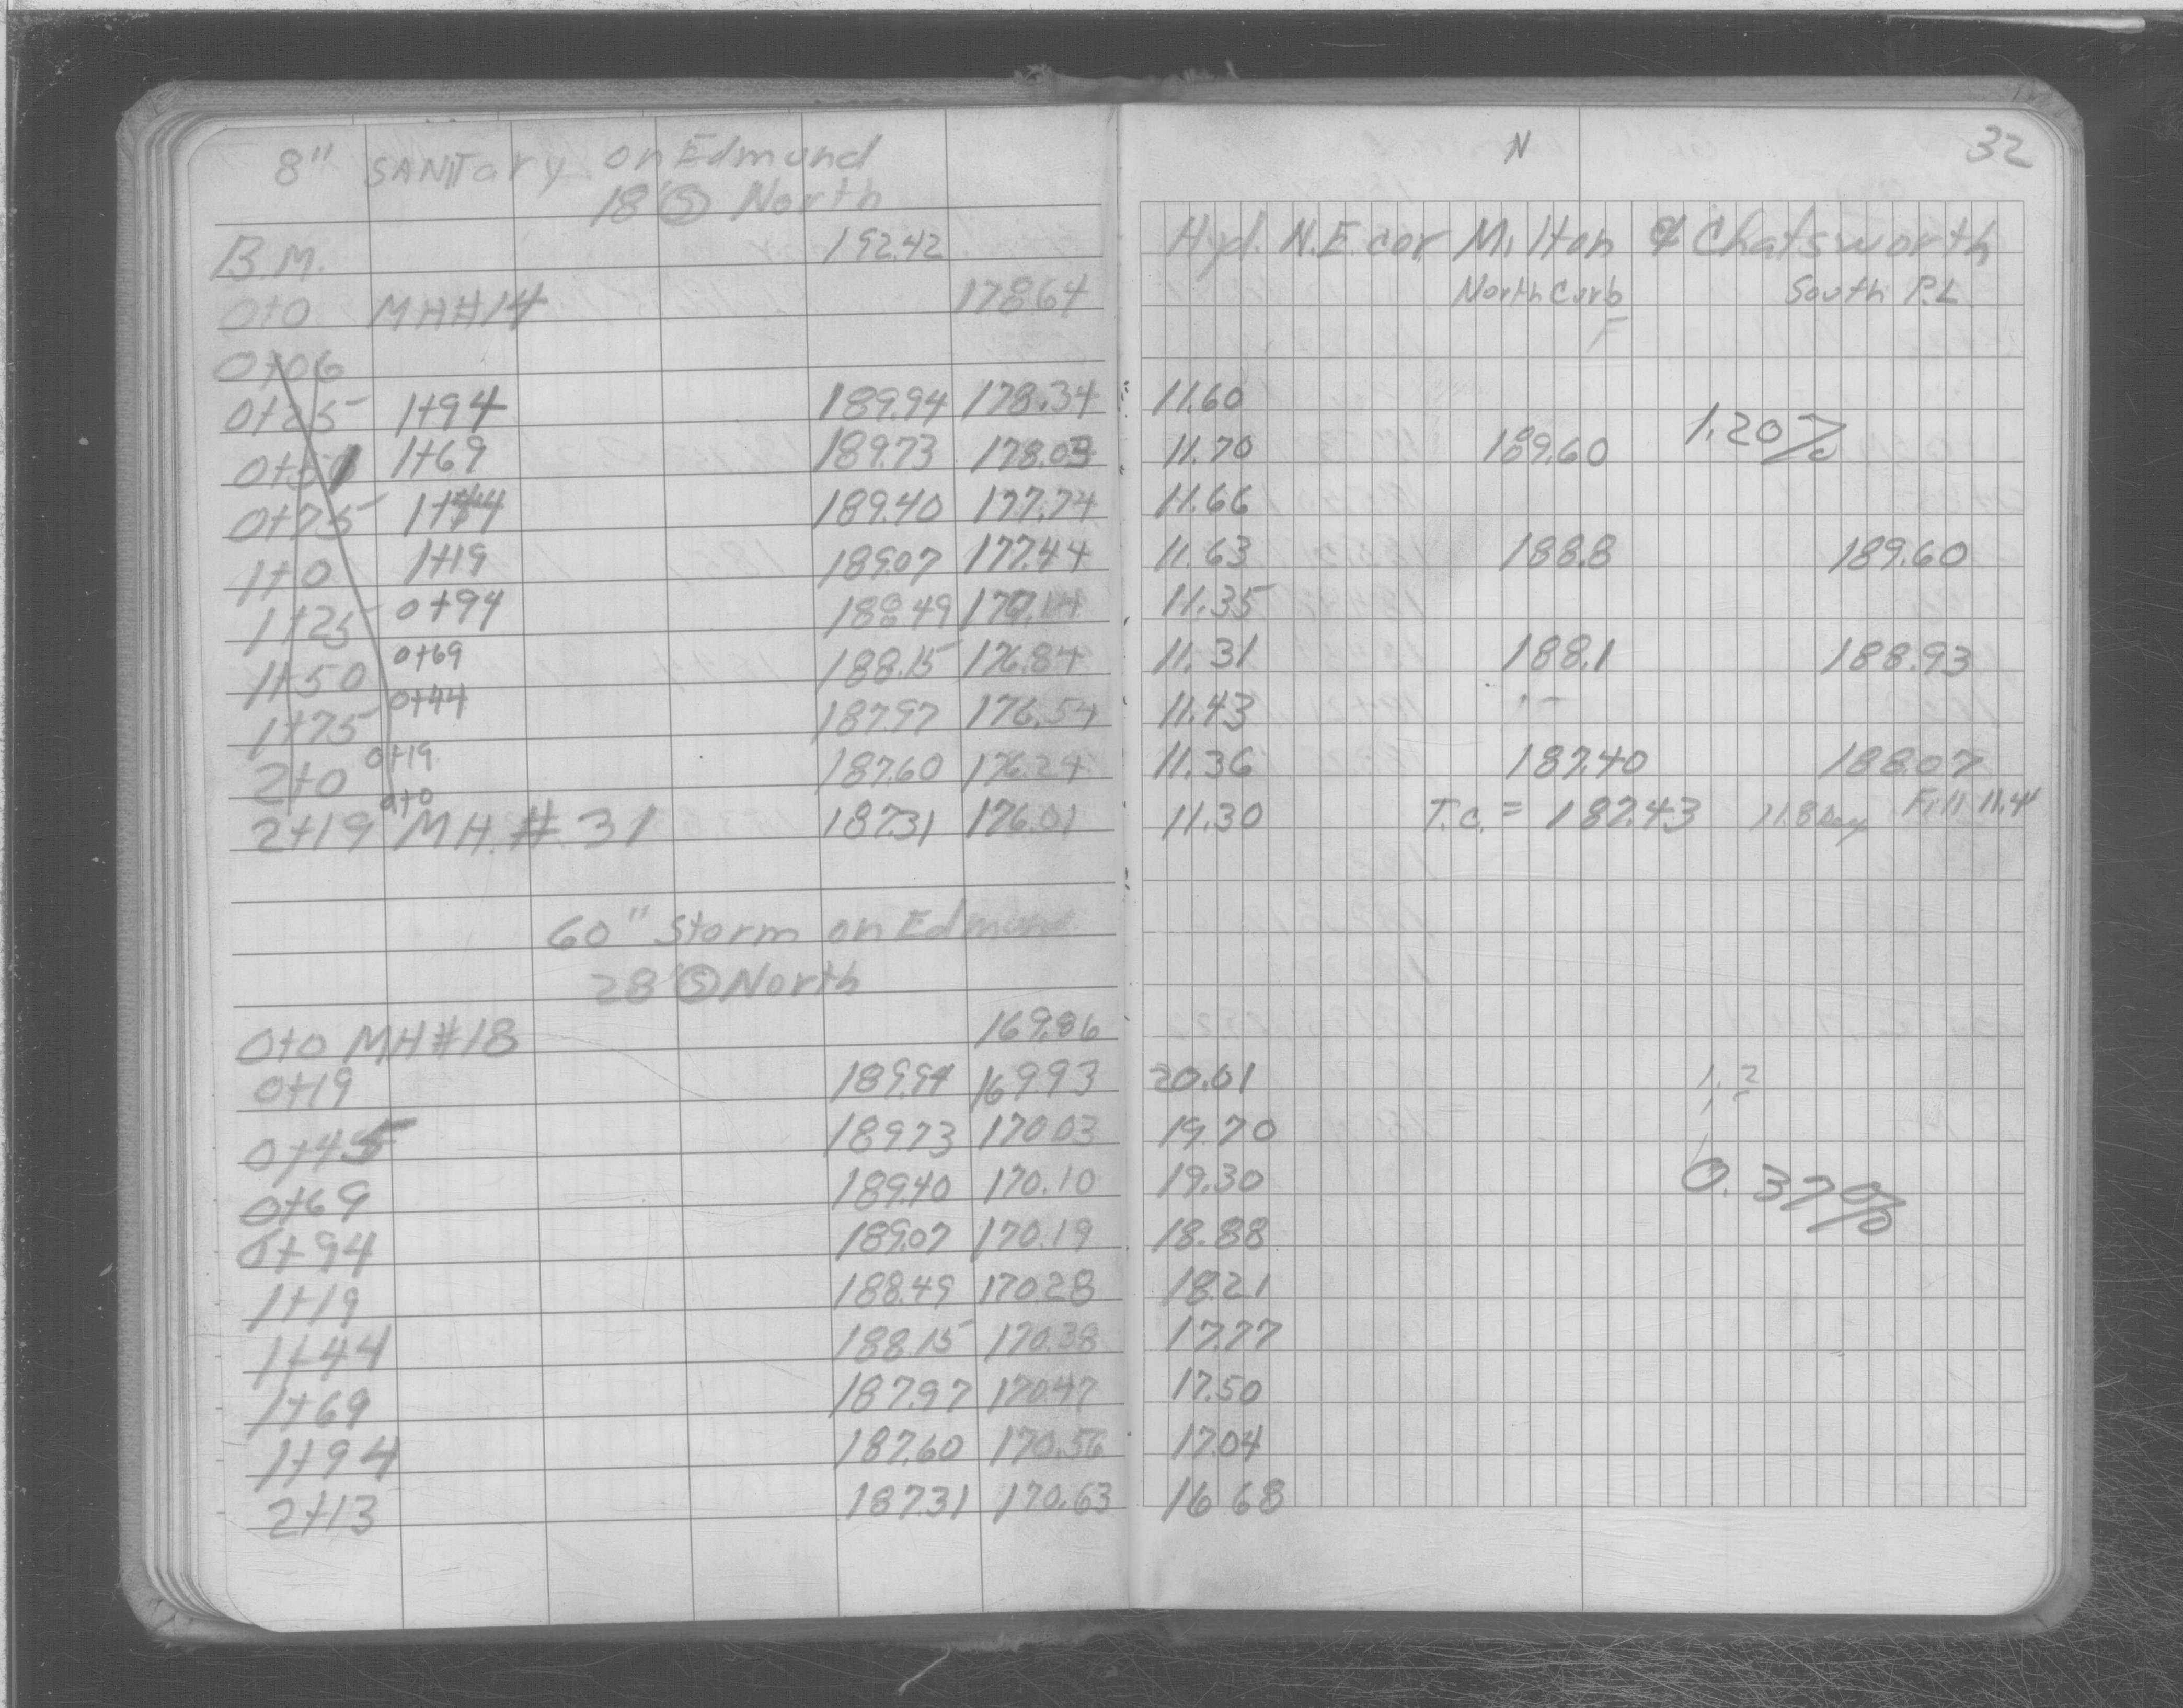 32
N
8" SANITary on Edmund
18' Ⓢ North
B.M. 192.42 Hyd. N.E. cor Milton & Chatsworth
0+0 MH#14 178.64 North Curb South P.L.
0+06
0+25 1+94 189.94 178.34 11.60
0+50 1+69 189.73 178.03 11.70 189.60 1.20%
0+75 1+44 189.40 177.74 11.66
1+0 1+19 189.07 177.44 11.63 188.8 189.60
1+25 0+94 188.49 177.14 11.35
1+50 0+69 188.15 176.84 11.31 188.1 188.93
1+75 0+44 187.97 176.54 11.43
2+0 0+19 187.60 176.24 11.36 187.40 188.07
0+0
2+19 MH. # 31 187.31 176.01 11.30 T.C. = 187.43 Fill 11.4
60" Storm on Edmund
28' Ⓢ North
0+0 MH#18 169.86
0+19 189.94 169.93 20.01 1.2
0+45 189.73 170.03 19.70
0+69 189.40 170.10 19.30 0.37%
0+94 189.07 170.19 18.88
1+19 188.49 170.28 18.21
1+44 188.15 170.38 17.77
1+69 187.97 170.47 17.50
1+94 187.60 170.56 17.04
2+13 187.31 170.63 16.68